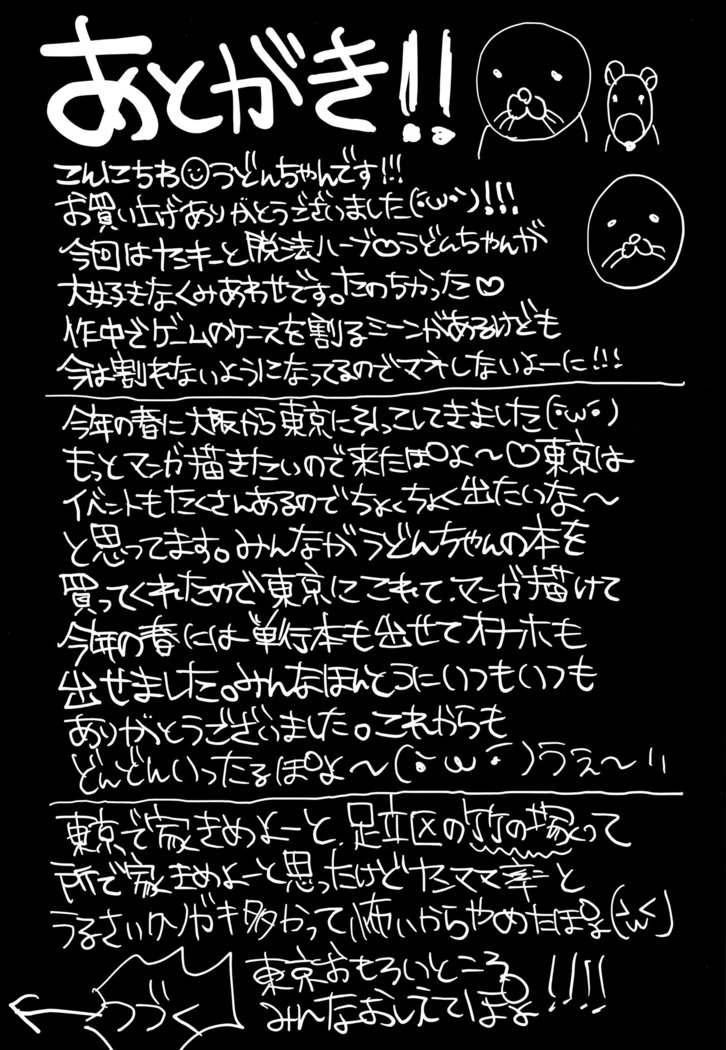 あとがき!!
こんにちわ うどんちゃんです!!!
お買い上げありがとうございました(´・ω・`)!!!
今回はヤンキーと脱法ハーブ♡うどんちゃんが
大好きなくみあわせです。たのちかった♡
作中でゲームのケースを割るシーンがあるけども
今は割れないようになってるのでマネしないよーに!!!
今年の春に大阪から東京に引っこしてきました(´・ω・`)
もっとマンガ描きたいので来たぽよ〜♡東京は
イベントもたくさんあるのでちょくちょく出たいな〜
と思ってます。みんながうどんちゃんの本を
買ってくれたので東京にこれて、マンガ描けて
今年の春には単行本も出せてオナホも
出せました。みんなほんとうにいつもいつも
ありがとうございました。これからも
どんどんいったるぽよ〜(´・ω・`)うぇ〜!!
東京で家きめよーと、足立区の竹の塚って
所で家きめよーと思ったけどヤンママ率と
うるさいガキ多かって怖いからやめたぽよ(´・ω・`)
東京おもろいところ
みんなおしえてぽよ!!!!
つづく